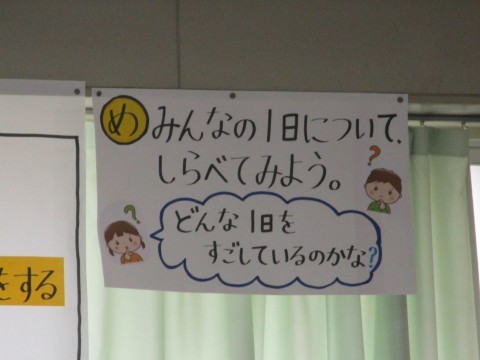 め みんなの1日について、
しらべてみよう。
?
?
どんな1日を
すごしているのかな?
をする